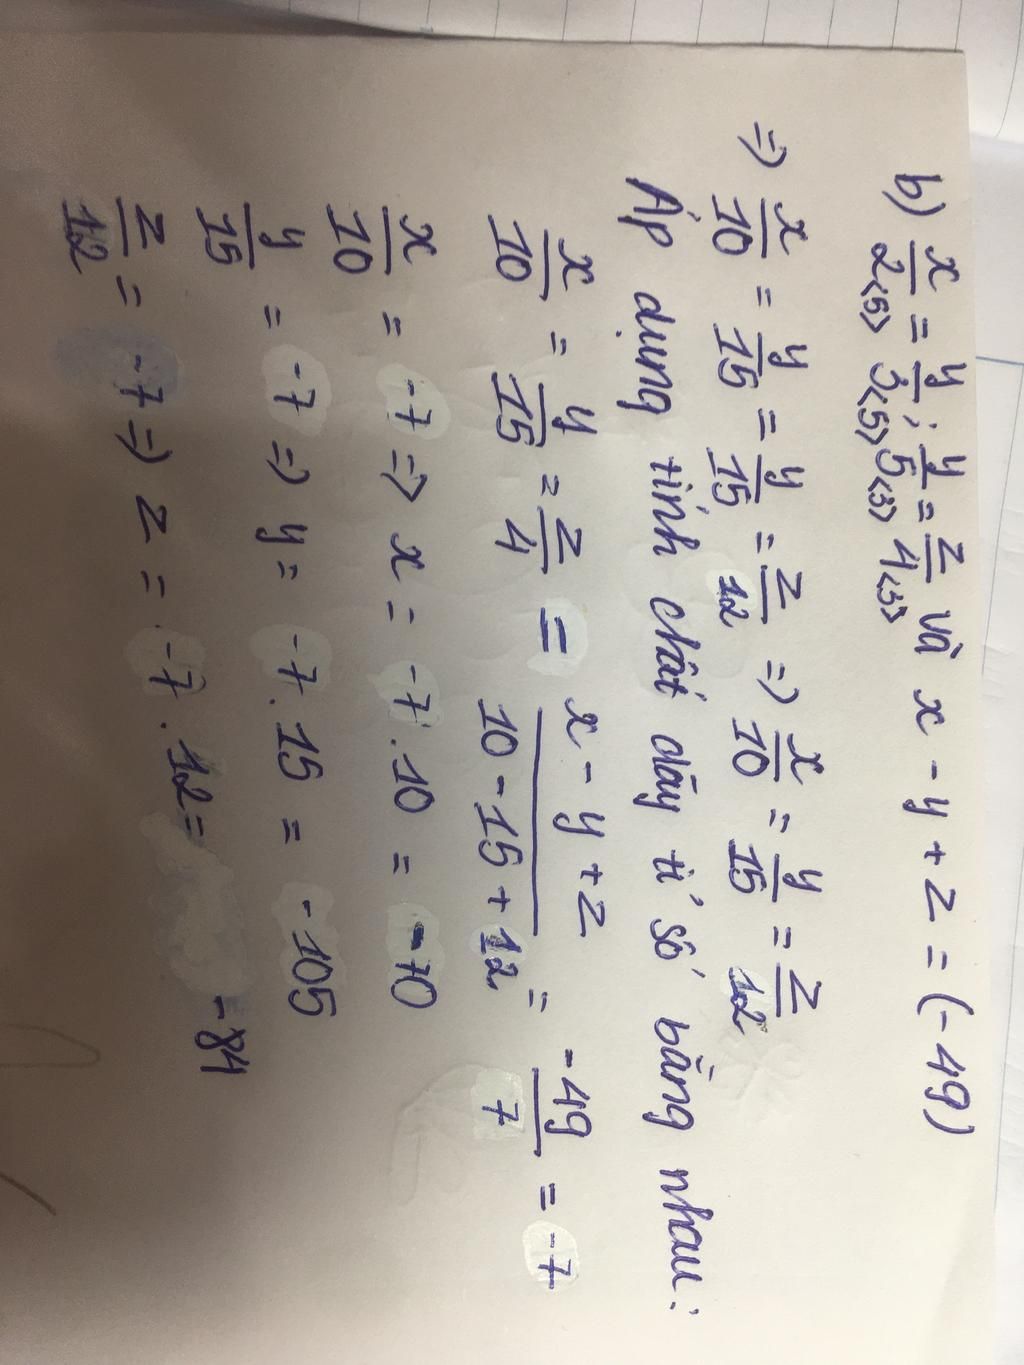 b) x/2<5> = y/3<5> ; y/5<3> = z/4<3> và x - y + z = (-49)
=) x/10 = y/15 = y/15 = z/12 =) x/10 = y/15 = z/12
Áp dụng tính chất dãy tỉ số bằng nhau:
x/10 = y/15 = z/4 = x - y + z/10 - 15 + 12 = -49/7 = -7
x/10 = -7 =) x = -7 . 10 = -70
y/15 = -7 =) y = -7 . 15 = -105
z/12 = -7 =) z = -7 . 12 = -84